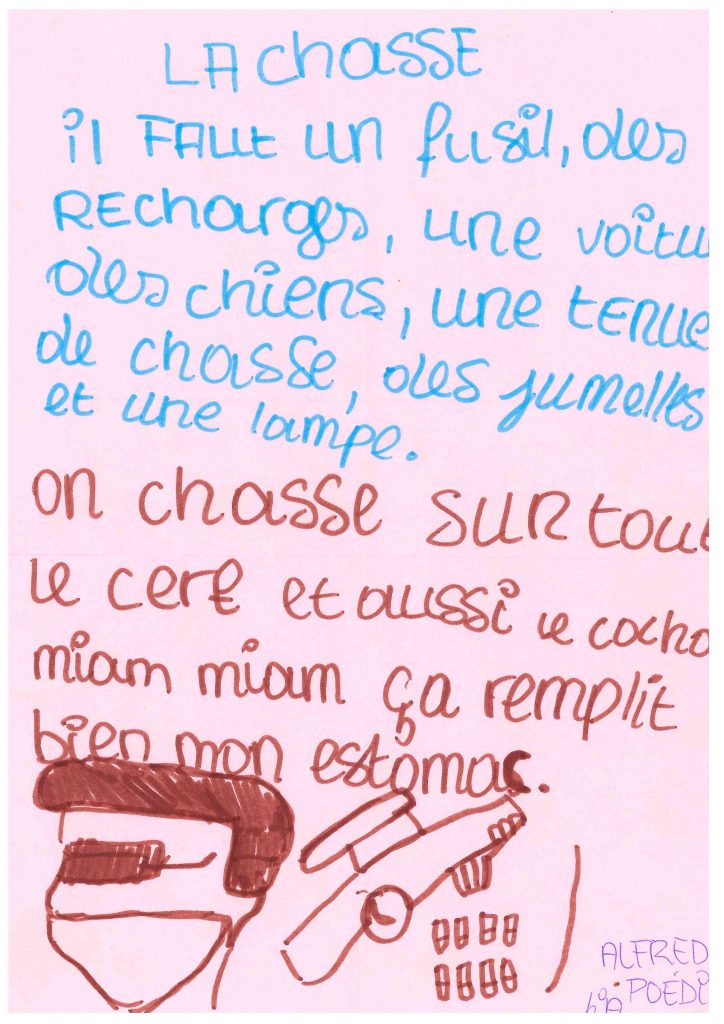 LA chasse
il FAUt un fusil, des
REcharges, une voitu
des chiens, une tenue
de chasse, des jumelles
et une lampe.
on chasse SURtout
le cerf et aussi le cocho
miam miam ça remplit
bien mon estomac.
ALFRED
POÉDI